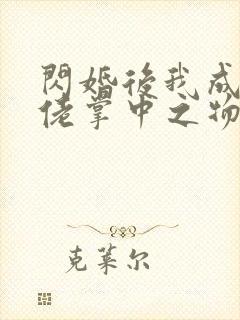 閃婚後我成
佬掌中之物
克莱尔